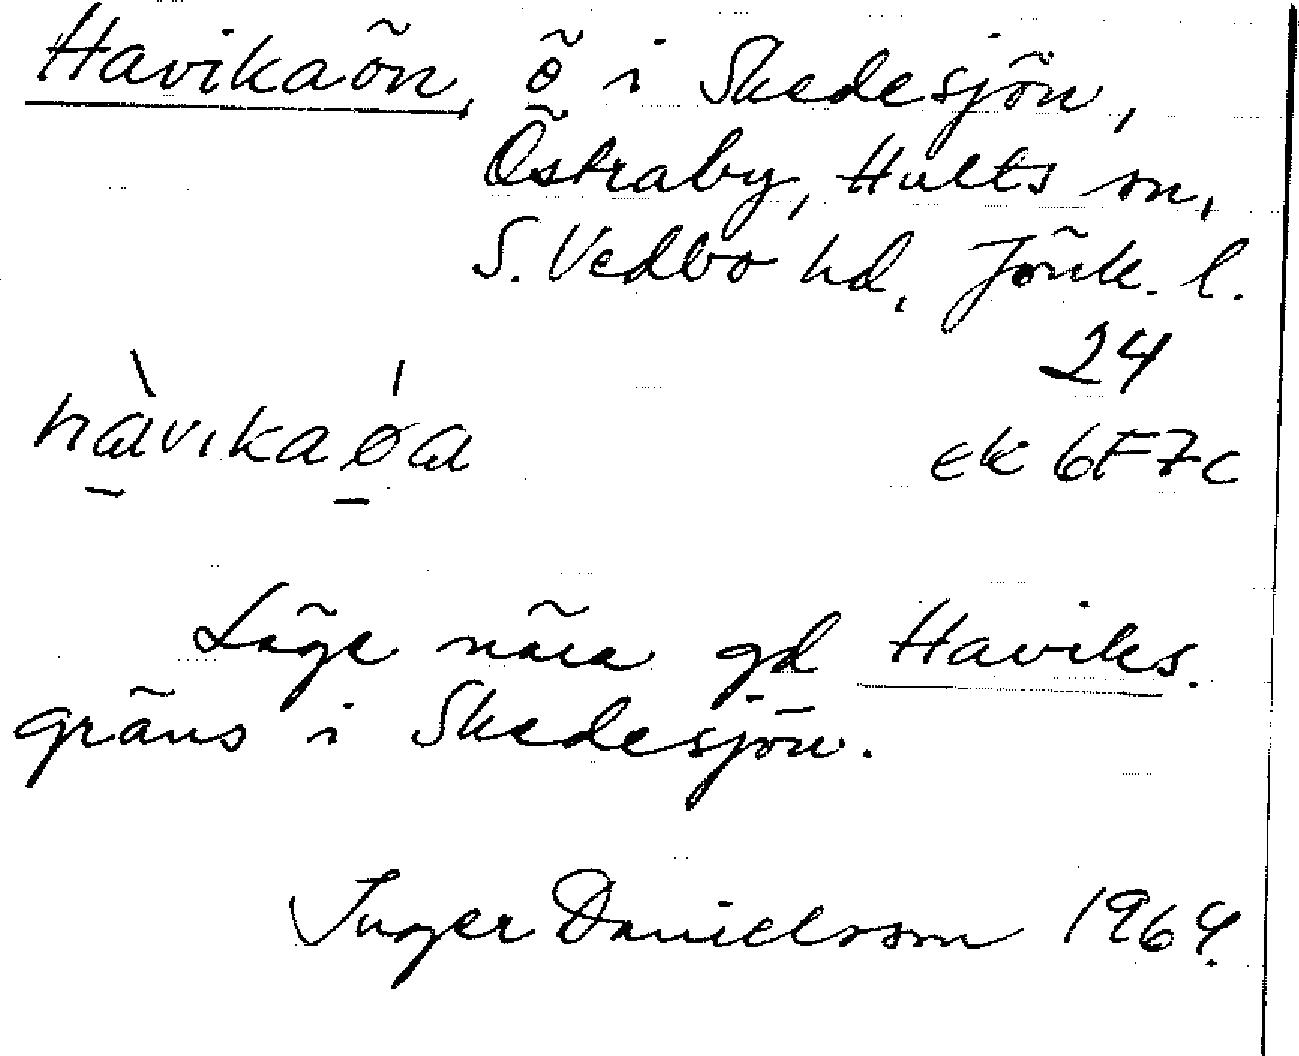 Havikaön, ö i Skedesjön,
Östraby, Hults sn,
S. Vedbo hd, Jönk. l.
24
hàvikaǿa
ek 6F7c
Läge nära gd Haviks.
gräns i Skedesjön.
Inger Danielsson 1964.